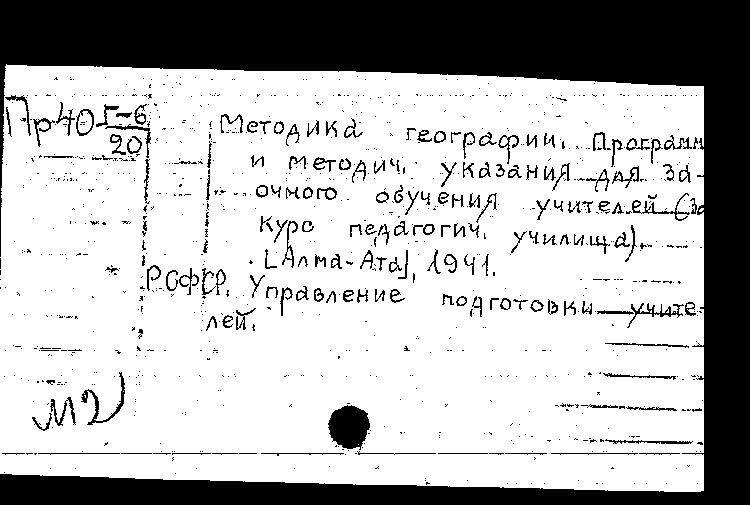 Пр40 Г-6
20
Методика географии. Программ
и методич. указания для за-
очного обучения учителей (за
курс педагогич. училища).
[Алма-Ата], 1941.
РСФСР. Управление подготовки учите-
лей.
М2)